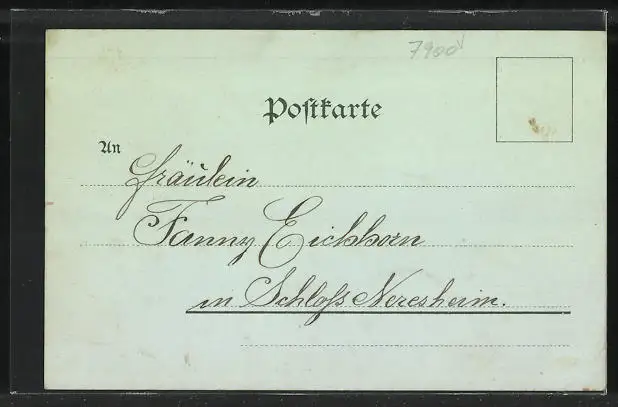 7900
Postkarte
An
Fräulein
Fanny Eichhorn
in Schloß Neresheim.